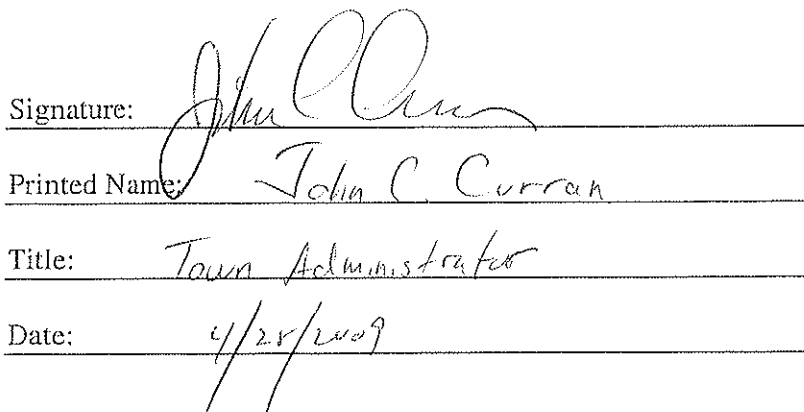 Signature: John C Curran
Printed Name: John C. Curran
Title: Town Administrator
Date: 4/28/2009